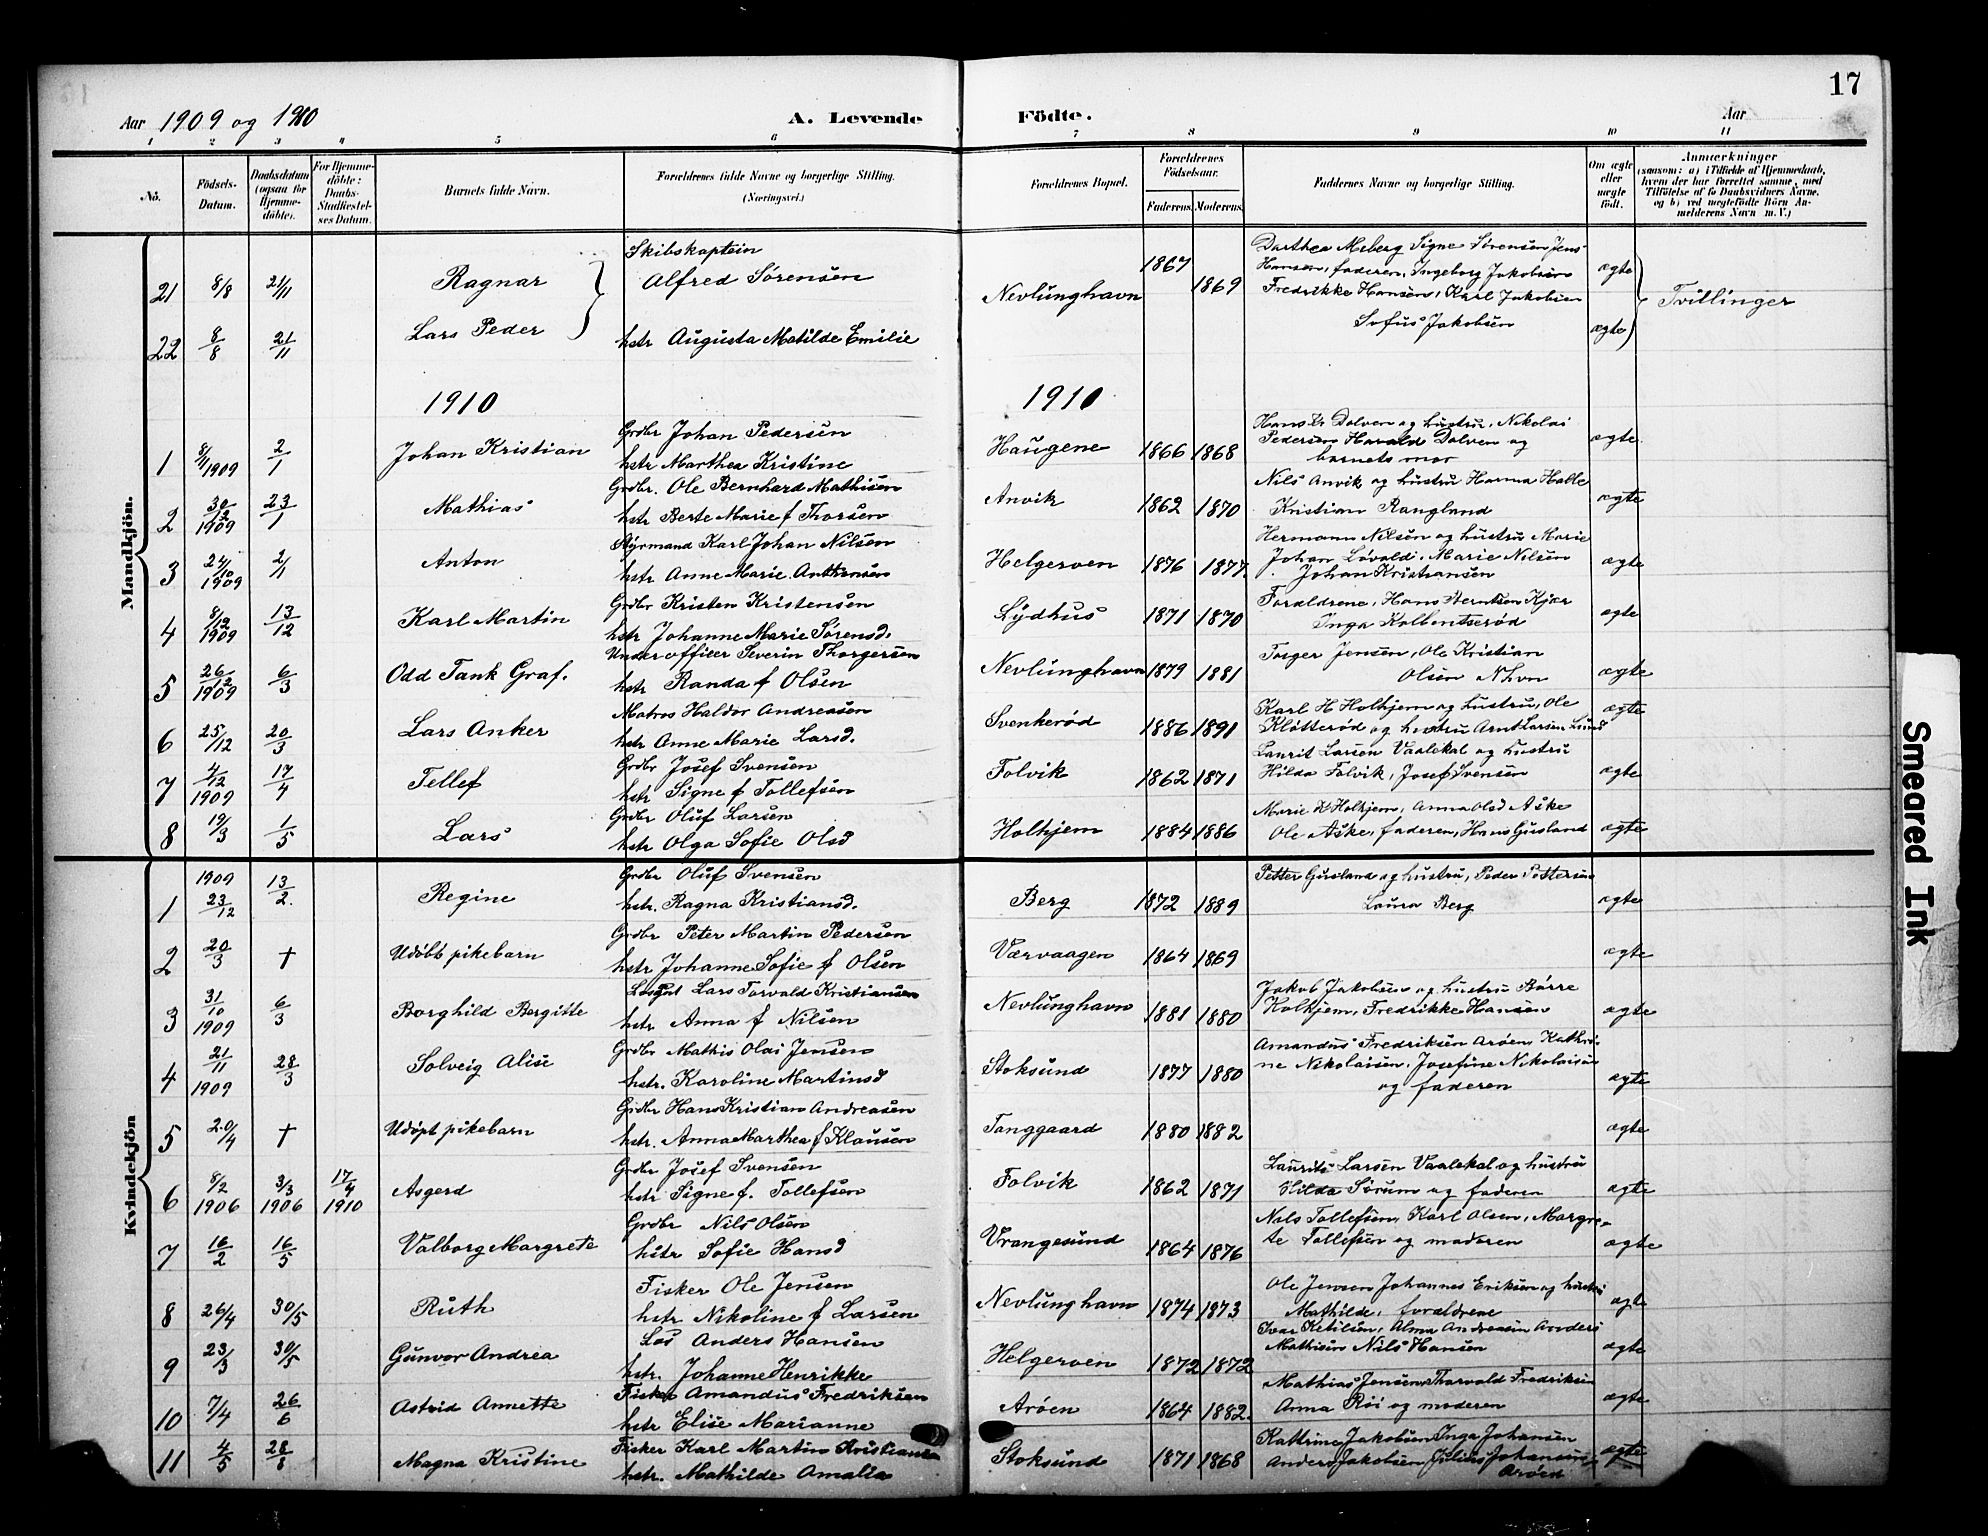 17
Aar 1909 og 1910 A. Levende Födte. Aar
1 2 3 4 5 6 7 8 9 10 11
No.
Födsels-Datum.
Daabsdatum (ogsaa for Hjemmedöbte).
For Hjemmedöbte: Daabs-Stadfæstelses Datum.
Barnets fulde Navn.
Forældrenes fulde Navne og borgerlige Stilling. (Næringsvei.)
Forældrenes Bopæl.
Forældrenes Födselsaar.
Faderens. Moderens.
Faddernes Navne og borgerlige Stilling.
Om ægte eller uægte födt.
Anmærkninger
(saasom: a) i Tilfælde af Hjemmedaab, hvem der har forrettet samme, med Tilföielse af to Daabsvidners Navne, og b) ved uægtefödte Börn Anmelderens Navn m. V.)
Mandkjön.
Skibskaptein Dorthea Meberg Signe Sørensen Jens
21 8/8 21/11 Ragnar Alfred Sørensen Nevlunghavn 1867 1869 Hansen, faderen, Ingeborg Jakobsen ægte
Fredrikke Hansen, Karl Jakobsen Tvillinger
22 8/8 21/11 Lars Peder hstr Augusta Matilde Emilie Sofus Jakobsen ægte
1910 1910
Grdbr Johan Pedersen Hans Dolven og hustru, Nikolai
1 8/11 1909 2/1 Johan Kristian hstr Marthea Kristine Haugene 1866 1868 Pedersen Harald Dolven og barnets mor ægte
Grdbr. Ole Bernhard Mathisen Nils Anvik og hustru
2 30/12 1909 23/1 Mathias hstr Berte Marie f Thorsen Anvik 1862 1870 Kristian Rangland ægte
Styrmand Karl Johan Nilsen Hermann Nilsen og hustru Marie
3 24/10 1909 2/1 Anton hstr Anne Marie Anthonsen Helgerven 1876 1877 Johan Løvald, Marie Nilsen Johan Kristiansen ægte
Grdbr Kristen Kristensen Forældrene, Hans Berntsen Kjær
4 8/12 1909 13/12 Karl Martin hstr Johanne Marie Sørensd. Lydhus 1871 1870 Inga Kolbentserød ægte
Underofficer Severin Thorgersen Torger Jensen, Ole Kristian
5 26/12 1909 6/3 Odd Tank Graf. hstr Randa f Olsen Nevlunghavn 1879 1881 Olsen N.hvn ægte
Matros Haldor Andreasen Karl H Holhjem og hustru, Ole
6 25/12 20/3 Lars Anker hstr Anne Marie Larsd. Svenkerød 1886 1891 Kløtterød og hustru Arnt Larsen Lund ægte
Grdbr Josef Svensen Laurit Larsen Vaalekal og hustru
7 4/12 1909 17/4 Tellef hstr Signe f Tollefsen Folvik 1862 1871 Hilda Folvik, Josef Svensen ægte
Grdbr Oluf Larsen Marie Holhjem, Anna Olsd Aske
8 19/3 1/5 Lars hstr Olga Sofie Olsd Holhjem 1884 1886 Ole Aske, faderen, Hans Gusland ægte
Kvindekjön
Grdbr Oluf Svensen Petter Gusland og hustru, Peder Pettersen
1 1909 23/12 13/2 Regine hstr. Ragna Kristiansd. Berg 1872 1889 Laura Berg ægte
Grdbr Peter Martin Pedersen
2 20/3 † Udøbt pikebarn hstr Johanne Sofie f Olsen Værvaagen 1864 1869 ægte
Lars Torvald Kristiansen Jakob Jakobsen og hustru Børre
3 31/10 1909 6/3 Borghild Bergitte hstr Anna f Nilsen Nevlunghavn 1881 1880 Holhjem, Fredrikke Hansen ægte
Grdbr Mathis Olai Jensen Amandus Fredriksen Arøen, Kathri-
4 21/11 1909 28/3 Solveig Alise hstr. Karoline Martinsd Stoksund 1877 1880 ne Nikolaisen, Josefine Nikolaisen og faderen ægte
Grdbr Hans Kristian Andreasen
5 20/4 † Udøpt pikebarn hstr. Anna Marthea f Klausen Tanggaard 1880 1882 ægte
Grdbr Josef Svensen Laurits Larsen Vaalekal og hustru
6 8/2 1906 3/3 1906 17/4 1910 Asgerd hstr Signe f. Tollefsen Folvik 1862 1871 Hilda Sørum og faderen ægte
Grdbr Nils Olsen Nils Tollefsen, Karl Olsen, Margre-
7 16/2 16/5 Valborg Margrete hstr Sofie Hansd Vrangesund 1864 1876 te Tollefsen og moderen ægte
Fisker Ole Jensen Ole Jensen Johannes Eriksen og hustru
8 26/4 30/5 Ruth hstr Nikoline f Larsen Nevlunghavn 1874 1873 Mathilde, forældrene ægte
Los Anders Hansen Ivar Ketilsen, Alma Andreasen Anders
9 23/3 30/5 Gunvor Andrea hstr. Johanne Henrikke Helgerven 1872 1872 Mathisen Nils Hansen ægte
Fisker Amandus Fredriksen Mathias Jensen, Thorvald Fredriksen
10 7/4 26/6 Astrid Annette hstr Elise Marianne Arøen 1864 1882. Anna Røi og moderen ægte
Fisker Karl Martin Kristiansen Kathrine Jakobsen Inga Johansen
11 4/5 28/8 Magna Kristine hstr. Mathilde Amalia Stoksund 1871 1868 Anders Jakobsen Julius Johansen, Arøen ægte
Smeared Ink